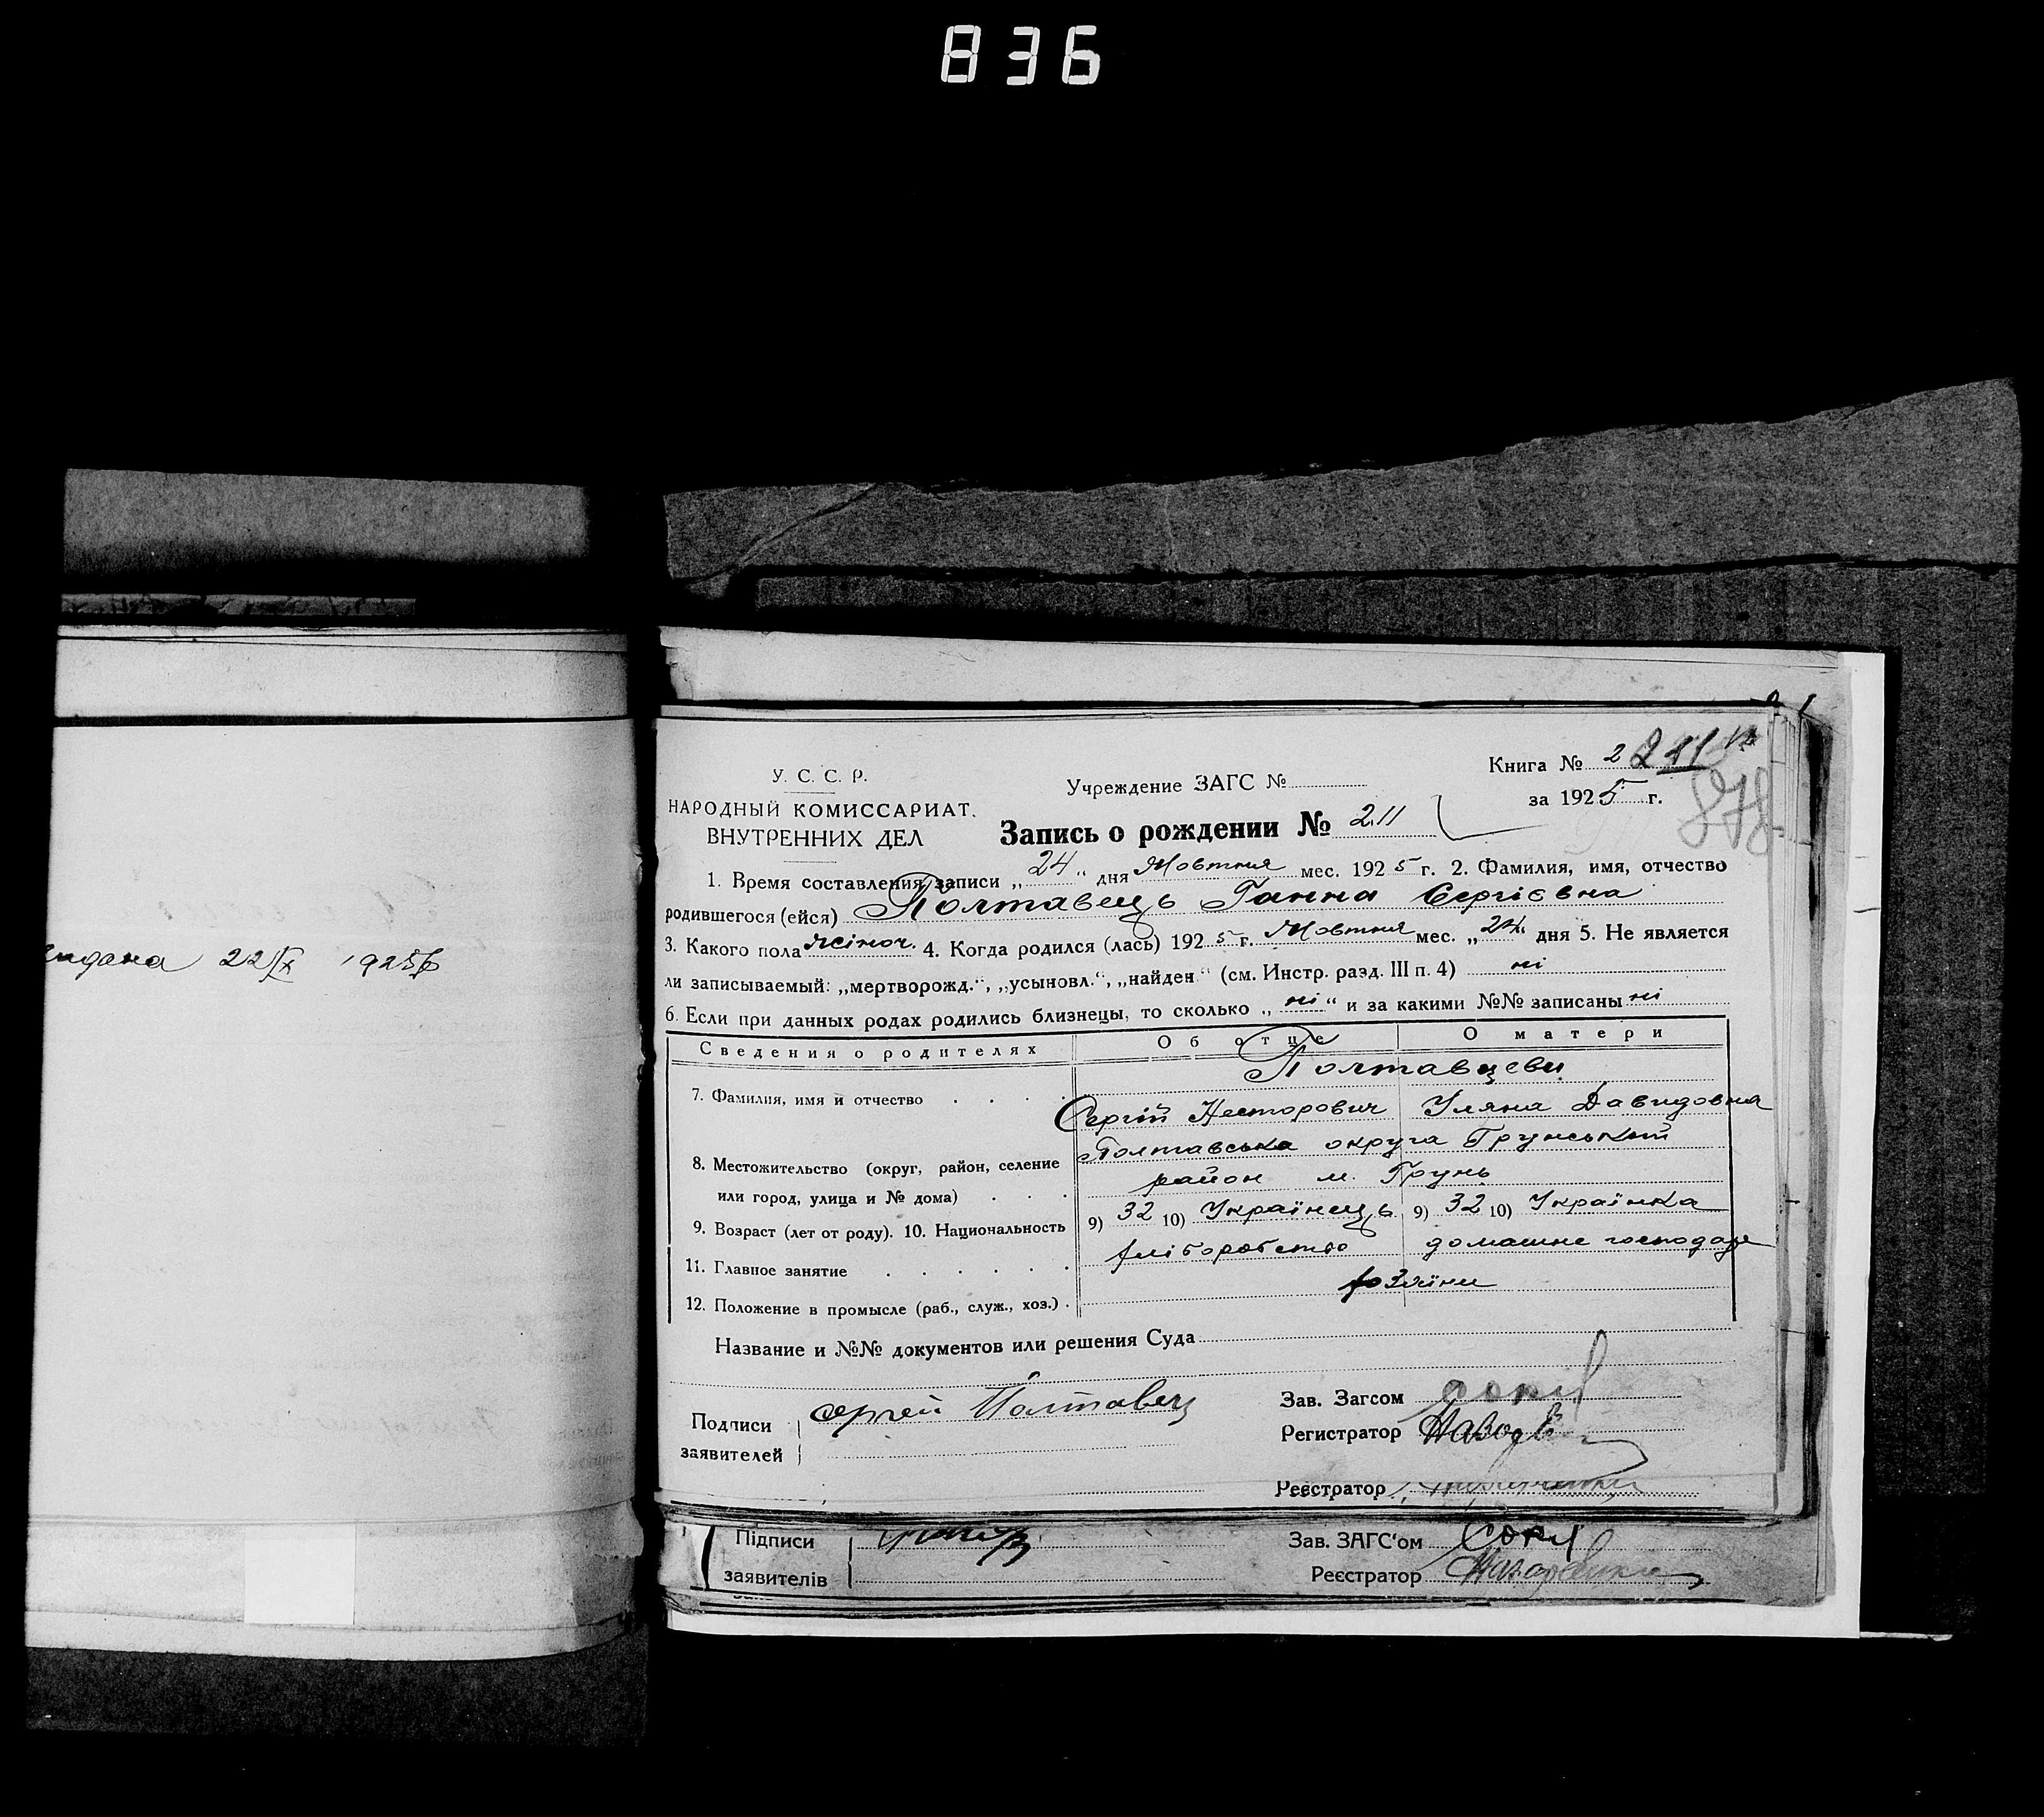 836
Видана 22/IX 1925/6
У. С. С. Р.
НАРОДНЫЙ КОМИССАРИАТ.
ВНУТРЕННИХ ДЕЛ
Учреждение ЗАГС №
Книга № 2
за 1925 г.
878
Запись о рождении № 211
1. Время составления записи „24“ дня Жовтня мес. 1925 г. 2. Фамилия, имя, отчество
родившегося (ейся) Полтавець Ганна Сергієвна
3. Какого пола жіноч. 4. Когда родился (лась) 1925 г. Жовтня мес. „24“ дня 5. Не является
ли записываемый: „мертворожд.“, „усыновл.“, „найден“ (см. Инстр. разд. III п. 4) ні
6. Если при данных родах родились близнецы, то сколько „ні“ и за какими №№ записаны ні
Сведения о родителях Об отце О матери
Полтавцеви
7. Фамилия, имя и отчество . . . . Сергій Несторович Уляна Давидовна
Полтавська округа Грунський
8. Местожительство (округ, район, селение
район м. Грунь
или город, улица и № дома) . . .
9. Возраст (лет от роду). 10. Национальность 9) 32 10) Українець 9) 32 10) Українка
11. Главное занятие . . . . . . хліборобство домашне господар
12. Положение в промысле (раб., служ., хоз.) . хозяїни
Название и №№ документов или решения Суда
Подписи
заявителей
Сергей Полтавец
Зав. Загсом
Регистратор
Реєстратор
Підписи
заявителів
Зав. ЗАГС'ом
Реєстратор